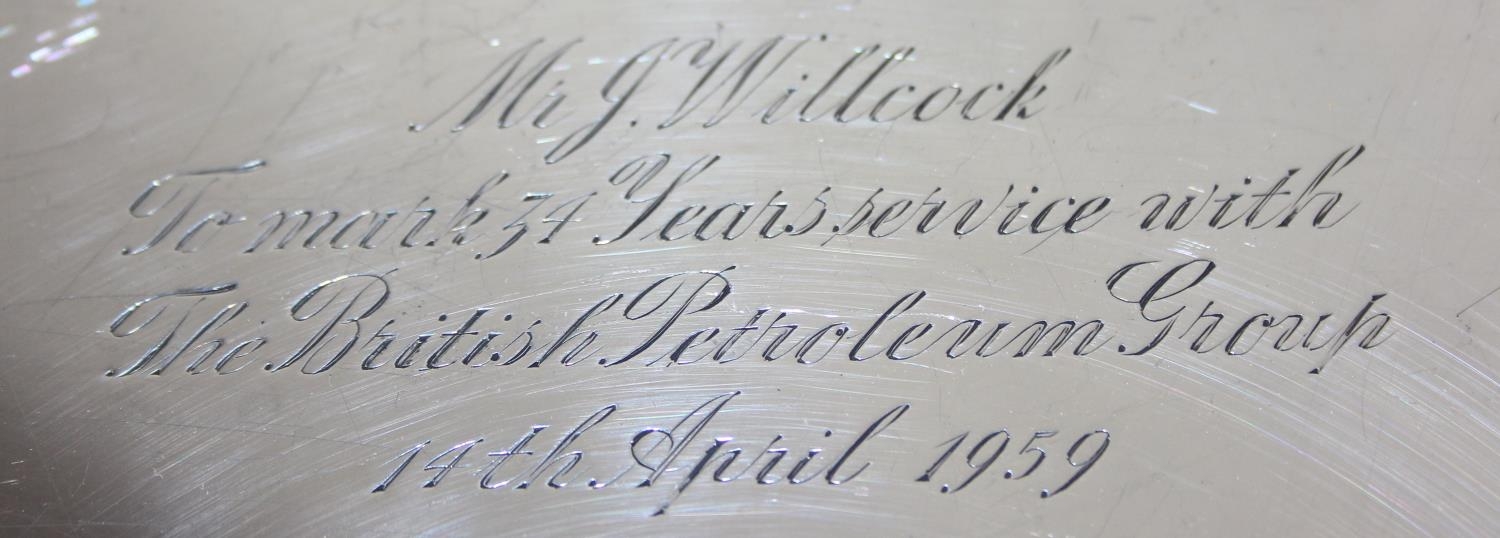 Mr J. Willcock
To mark 34 Years service with
The British Petroleum Group
14th April 1959